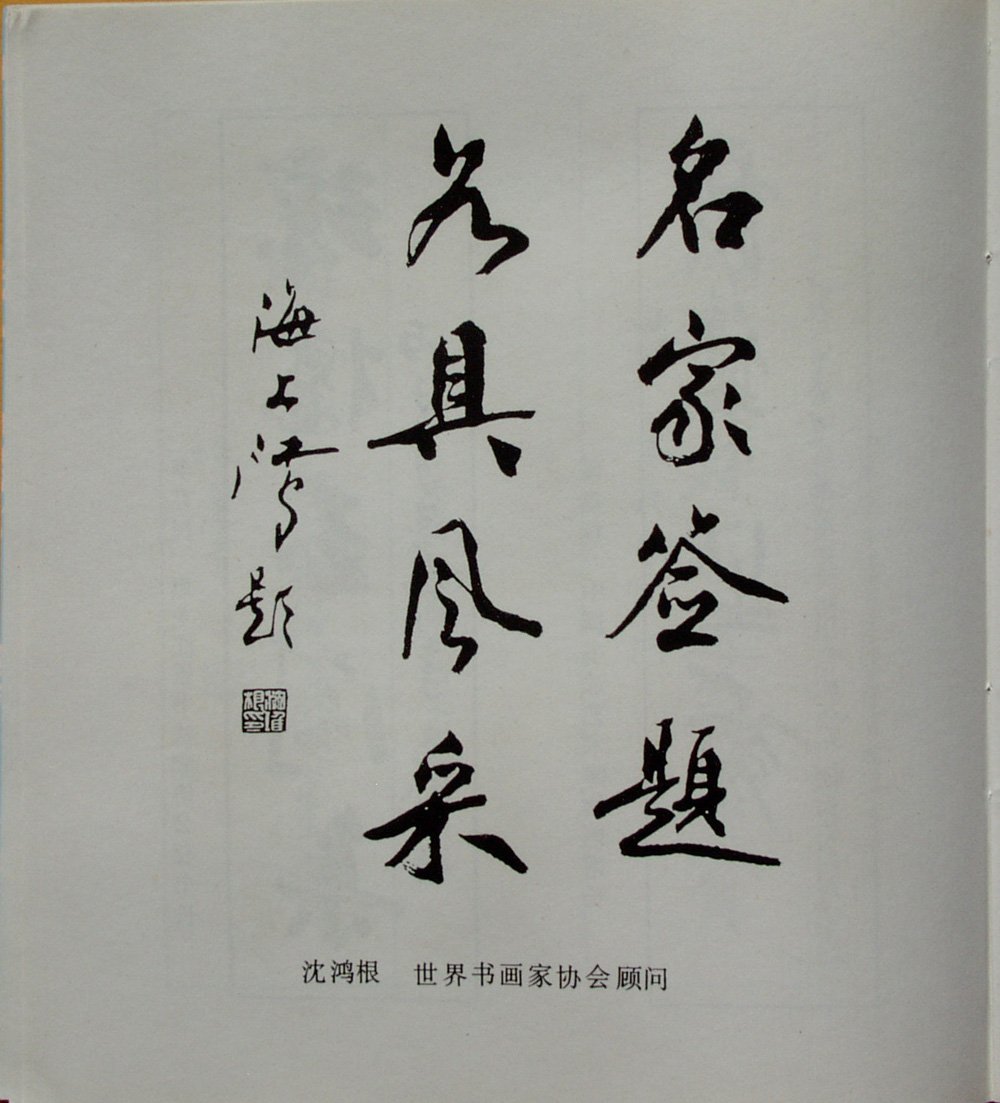 名家签题
各具风采
海上鸿题
沈鸿根 世界书画家协会顾问